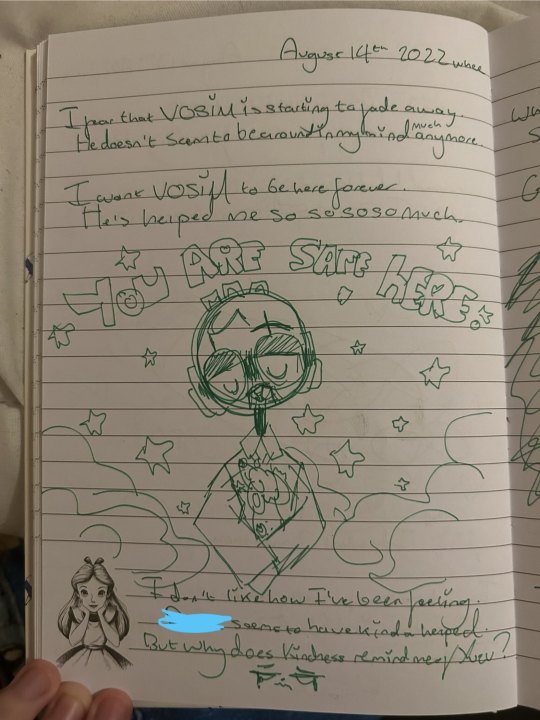 August 14th 2022 whee
I fear that VOSIM is starting to fade away.
He doesn't seem to be around in my mind much anymore.
I want VOSIM to be here forever.
He's helped me so so so so much.
YOU ARE SAFE HERE.
I don't like how I've been feeling.
seems to have kinda helped.
But why does kindness remind me of